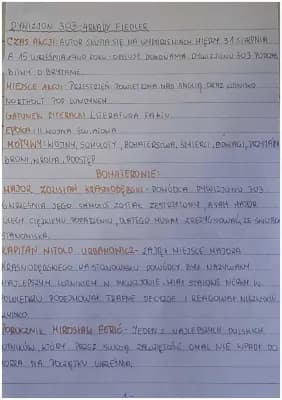 DYWIZJON 303 - ARKADY FIEDLER
CZAS AKCJI: AUTOR SKUPIA SIĘ NA WYDARZENIACH MIĘDZY 31 SIERPNIA
A 15 WRZEŚNIA 1940 ROKU. OPISUJE DOKONANIA DYWIZJONU 303 PODCZAS
BITWY O BRYTANIĘ
MIEJSCE AKCJI: PRZESTRZEŃ POWIETRZNA NAD ANGLIĄ ORAZ LOTNISKO
NORTHOLT POD LONDYNEM
GATUNEK LITERACKI: LITERATURA FAKTU
EPOKA: II WOJNA ŚWIATOWA
MOTYWY: WOJNY, SAMOLOTY, BOHATERSTWA, ŚMIERCI, ODWAGI, PRZYJAŹNI
BRONI, WROGA, PODSTĘP
BOHATEROWIE:
MAJOR ZDZISŁAW KRASNODĘBSKI - DOWÓDCA DYWIZJONU 303
WRZEŚNIA JEGO SAMOLOT ZOSTAŁ ZESTRZELONY, A SAM MAJOR
ULEGŁ CIĘŻKIEMU POPARZENIU, DLATEGO MUSIAŁ ZREZYGNOWAĆ ZE SWOJEGO
STANOWISKA.
KAPITAN WITOLD URBANOWICZ - ZAJĄŁ MIEJSCE MAJORA
KRASNODĘBSKIEGO NA STANOWISKU DOWÓDCY. BYŁ NAZYWANY
NAJLEPSZYM LOTNIKIEM W DYWIZJONIE. MIAŁ STALOWE NERWY. W
POWIETRZU PODEJMOWAŁ TRAFNE DECYZJE I REAGOWAŁ NIEZWYKLE
SZYBKO.
PORUCZNIK MIROSŁAW FERIĆ - JEDEN Z NAJLEPSZYCH POLSKICH
LOTNIKÓW, KTÓRY PRZEZ SWOJĄ ZAWZIĘTOŚĆ OMAL NIE WPADŁ DO
MORZA NA POCZĄTKU WRZEŚNIA.
- 1 -